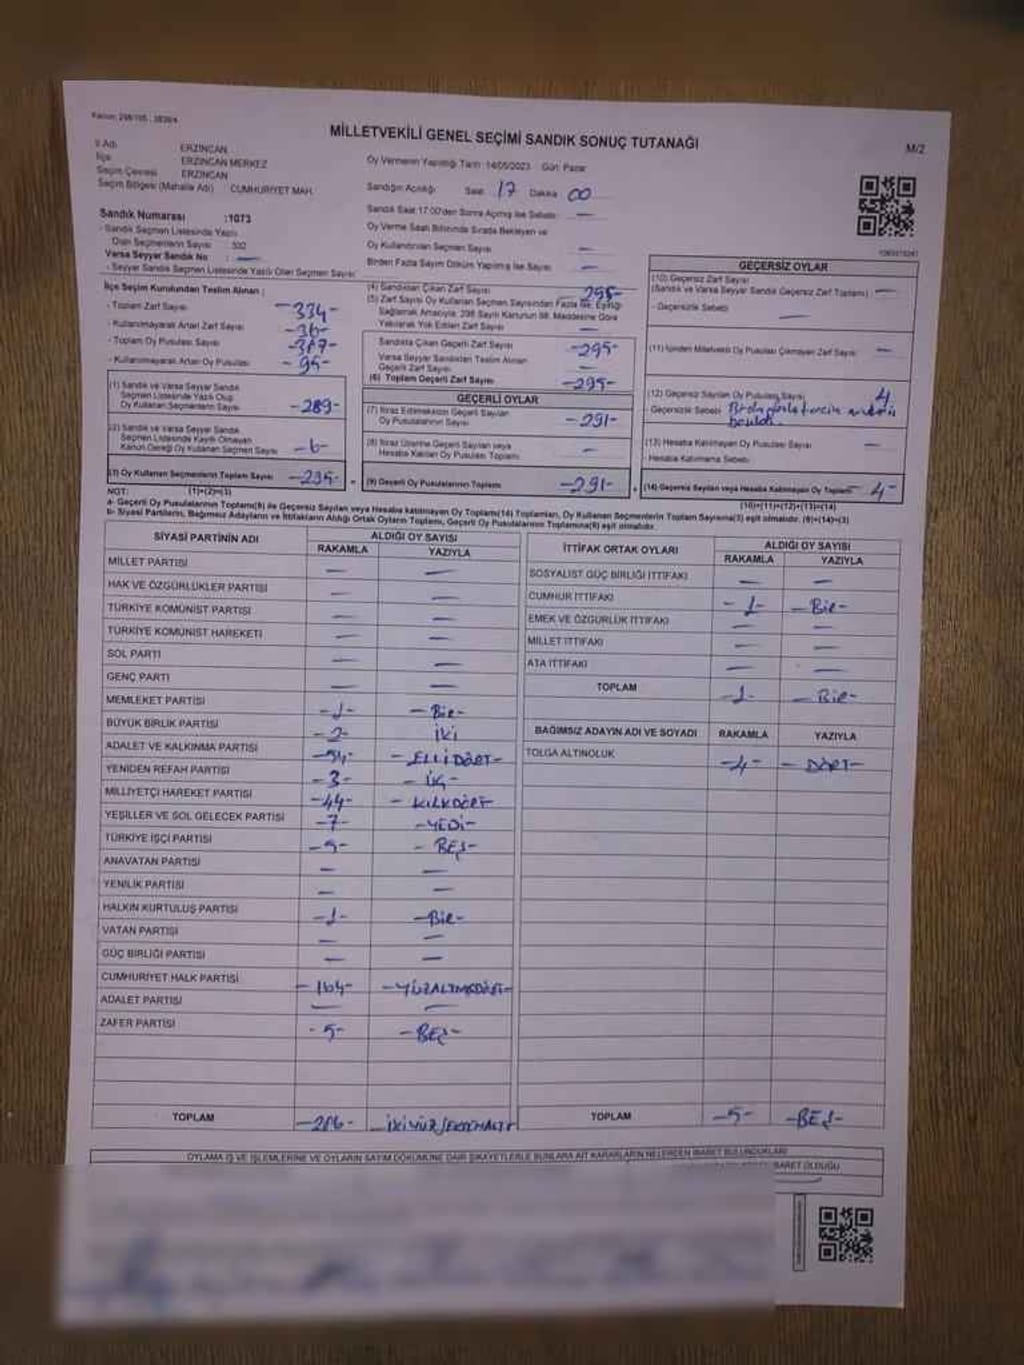 MİLLETVEKİLİ GENEL SEÇİMİ SANDIK SONUÇ TUTANAĞI
M/2
İl Adı ERZİNCAN
İlçe ERZİNCAN MERKEZ
Seçim Çevresi ERZİNCAN
Seçim Bölgesi (Mahalle Adı) CUMHURİYET MAH.
Oy Vermenin Yapıldığı Tarih :14/05/2023 Gün: Pazar
Sandığın Açıldığı Saat 17 Dakika 00
Sandık Saat 17:00'den Sonra Açılmış İse Sebebi : —
Sandık Numarası :1073
- Sandık Seçmen Listesinde Yazılı
Olan Seçmenlerin Sayısı
Varsa Seyyar Sandık No : —
- Seyyar Sandık Seçmen Listesinde Yazılı Olan Seçmen Sayısı
Oy Verme Saati Bitiminde Sırada Bekleyen ve
Oy Kullandırılan Seçmen Sayısı —
Birden Fazla Sayım Döküm Yapılmış İse Sayısı —
İlçe Seçim Kurulundan Teslim Alınan :
- Toplam Zarf Sayısı -334-
- Kullanılmayarak Artan Zarf Sayısı
- Toplam Oy Pusulası Sayısı
- Kullanılmayarak Artan Oy Pusulası -95-
(1) Sandık ve Varsa Seyyar Sandık
Seçmen Listesinde Yazılı Olup
Oy Kullanan Seçmenlerin Sayısı -289-
(2) Sandık ve Varsa Seyyar Sandık
Seçmen Listesinde Kayıtlı Olmayan
Kanun Gereği Oy Kullanan Seçmen Sayısı -6-
(3) Oy Kullanan Seçmenlerin Toplam Sayısı -295-
(4) Sandıktan Çıkan Zarf Sayısı 295-
(5) Zarf Sayısı Oy Kullanan Seçmen Sayısından Fazla İse, Eşitliği
Sağlamak Amacıyla; 298 Sayılı Kanunun 98. Maddesine Göre
Yakılarak Yok Edilen Zarf Sayısı —
Sandıkta Çıkan Geçerli Zarf Sayısı -295-
Varsa Seyyar Sandıktan Teslim Alınan
Geçerli Zarf Sayısı —
(6) Toplam Geçerli Zarf Sayısı -295-
GEÇERLİ OYLAR
(7) İtiraz Edilmeksizin Geçerli Sayılan
Oy Pusulalarının Sayısı -291-
(8) İtiraz Üzerine Geçerli Sayılan veya
Hesaba Katılan Oy Pusulası Toplamı —
(9) Geçerli Oy Pusulalarının Toplamı -291-
GEÇERSİZ OYLAR
(10) Geçersiz Zarf Sayısı
(Sandık ve Varsa Seyyar Sandık Geçersiz Zarf Toplamı) —
- Geçersizlik Sebebi —
(11) İçinden Milletvekili Oy Pusulası Çıkmayan Zarf Sayısı —
(12) Geçersiz Sayılan Oy Pusulası Sayısı 4
- Geçersizlik Sebebi
(13) Hesaba Katılmayan Oy Pusulası Sayısı —
- Hesaba Katılmama Sebebi
(14) Geçersiz Sayılan veya Hesaba Katılmayan Oy Toplamı 4-
NOT: (1)+(2)=(3) (10)+(11)+(12)+(13)=(14)
a- Geçerli Oy Pusulalarının Toplamı(9) ile Geçersiz Sayılan veya Hesaba katılmayan Oy Toplamı(14) Toplamları, Oy Kullanan Seçmenlerin Toplam Sayısına(3) eşit olmalıdır. (9)+(14)=(3)
b- Siyasi Partilerin, Bağımsız Adayların ve İttifakların Aldığı Ortak Oyların Toplamı, Geçerli Oy Pusulalarının Toplamına(9) eşit olmalıdır.
SİYASİ PARTİNİN ADI ALDIĞI OY SAYISI
RAKAMLA YAZIYLA
MİLLET PARTİSİ — —
HAK VE ÖZGÜRLÜKLER PARTİSİ — —
TÜRKİYE KOMÜNİST PARTİSİ — —
TÜRKİYE KOMÜNİST HAREKETİ — —
SOL PARTİ — —
GENÇ PARTİ — —
MEMLEKET PARTİSİ -1- -Bir-
BÜYÜK BİRLİK PARTİSİ -2- İKİ
ADALET VE KALKINMA PARTİSİ -54- -ELLİDÖRT-
YENİDEN REFAH PARTİSİ -3- -ÜÇ-
MİLLİYETÇİ HAREKET PARTİSİ -44- -KIRKDÖRT
YEŞİLLER VE SOL GELECEK PARTİSİ -7- -YEDİ-
TÜRKİYE İŞÇİ PARTİSİ -5- - BEŞ-
ANAVATAN PARTİSİ — —
YENİLİK PARTİSİ — —
HALKIN KURTULUŞ PARTİSİ -1- -Bir-
VATAN PARTİSİ — —
GÜÇ BİRLİĞİ PARTİSİ — —
CUMHURİYET HALK PARTİSİ -164- -YÜZALTMIŞDÖRT-
ADALET PARTİSİ — —
ZAFER PARTİSİ -5- -BEŞ-
TOPLAM -286- -İKİYÜZSEKSENALTI
İTTİFAK ORTAK OYLARI ALDIĞI OY SAYISI
RAKAMLA YAZIYLA
SOSYALİST GÜÇ BİRLİĞİ İTTİFAKI — —
CUMHUR İTTİFAKI -1- -Bir-
EMEK VE ÖZGÜRLÜK İTTİFAKI — —
MİLLET İTTİFAKI — —
ATA İTTİFAKI — —
TOPLAM -1- -Bir-
BAĞIMSIZ ADAYIN ADI VE SOYADI RAKAMLA YAZIYLA
TOLGA ALTINOLUK -4- -DÖRT-
TOPLAM -5- -BEŞ-
OYLAMA İŞ VE İŞLEMLERİNE VE OYLARIN SAYIM DÖKÜMÜNE DAİR ŞİKAYETLERLE BUNLARA AİT KARARLARIN NELERDEN İBARET BULUNDUKLARI